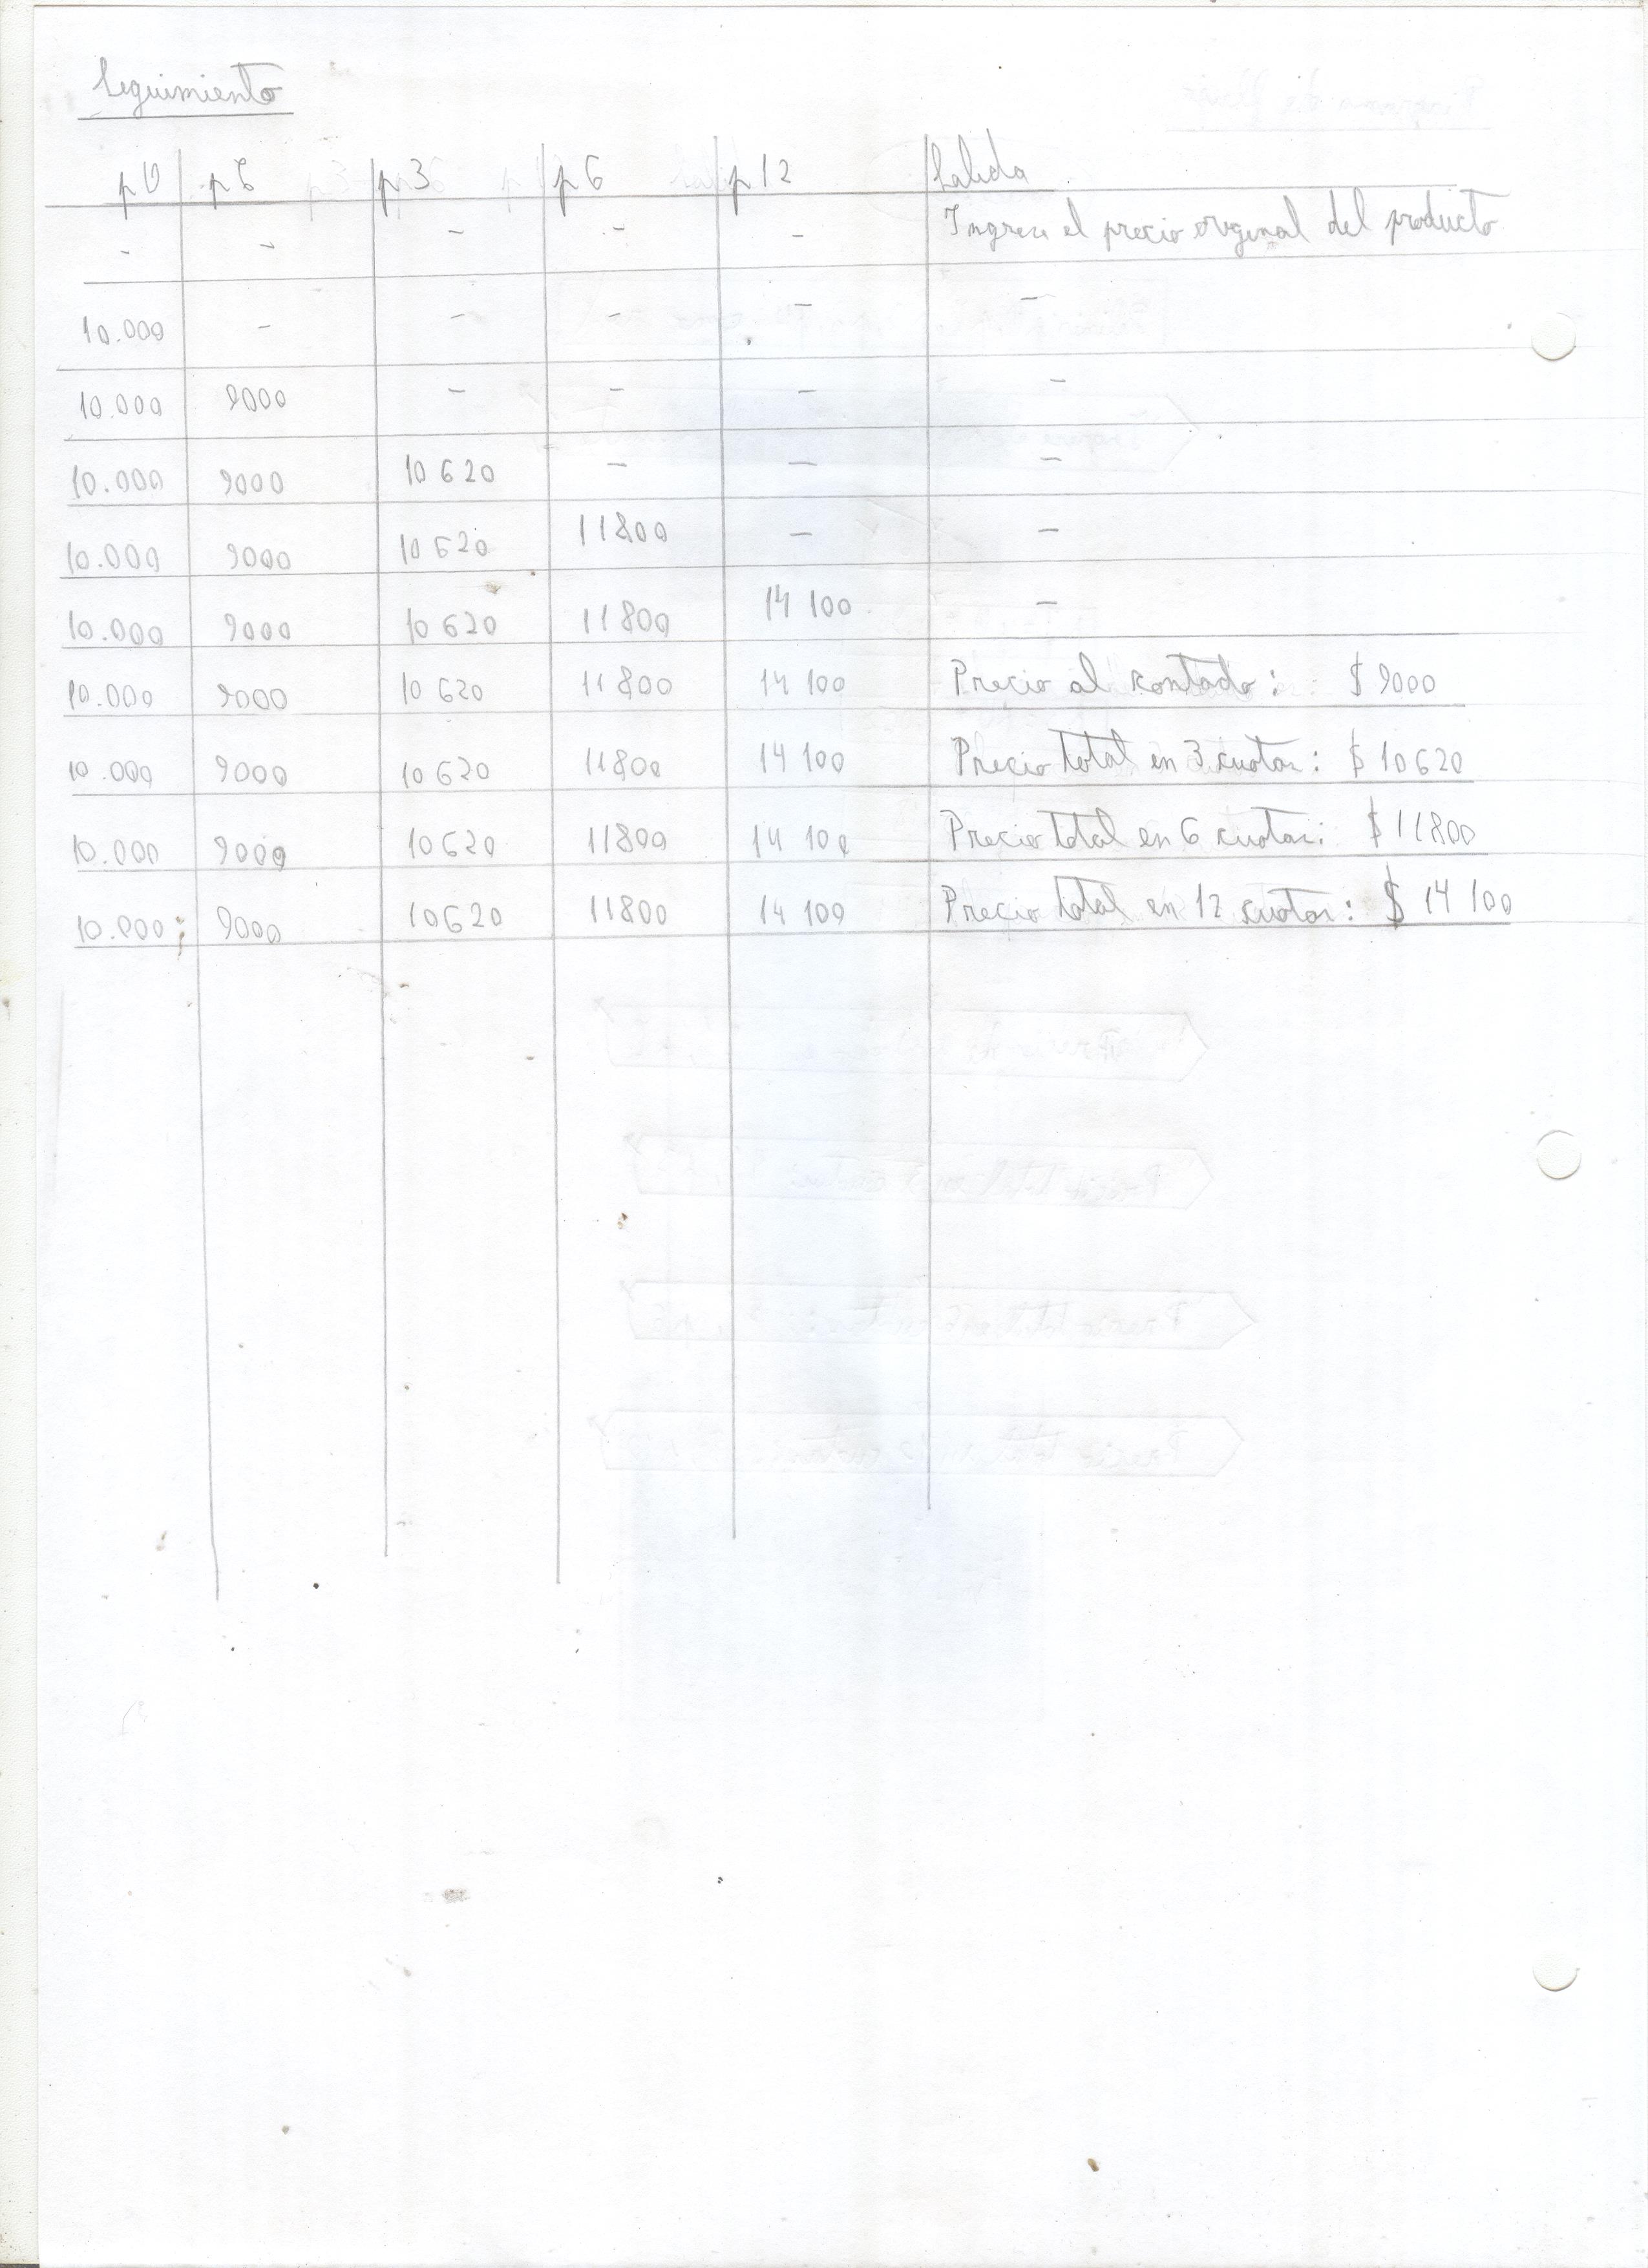 Seguimiento
pO pC p3 p6 p12 Salida
- - - - - Ingrese el precio original del producto
10.000 - - - - -
10.000 9000 - - - -
10.000 9000 10620 - - -
10.000 9000 10620 11800 - -
10.000 9000 10620 11800 14 100 -
10.000 9000 10620 11800 14 100 Precio al contado: $ 9000
10.000 9000 10620 11800 14 100 Precio total en 3 cuotas: $ 10620
10.000 9000 10620 11800 14 100 Precio total en 6 cuotas: $ 11800
10.000 9000 10620 11800 14 100 Precio total en 12 cuotas: $ 14 100